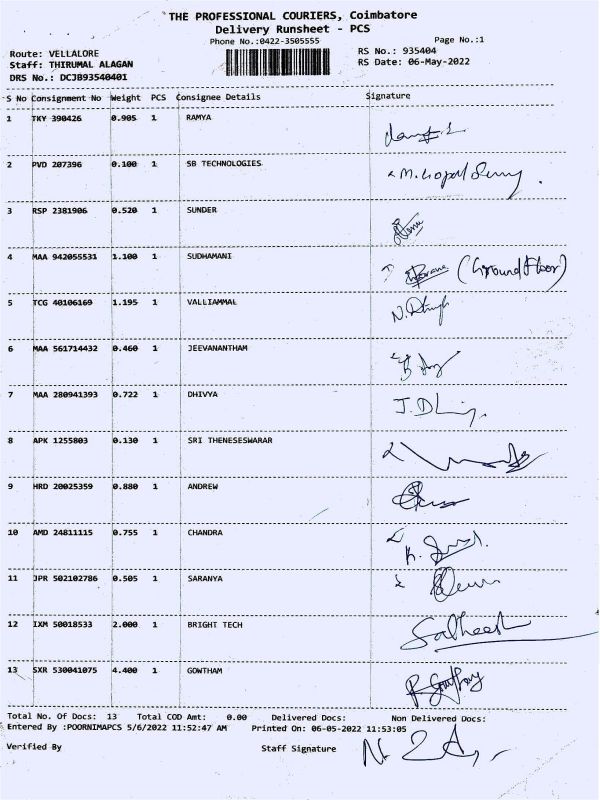 THE PROFESSIONAL COURIERS, Coimbatore
Delivery Runsheet - PCS
Phone No.:0422-3505555
Page No.:1
Route: VELLALORE
RS No.: 935404
Staff: THIRUMAL ALAGAN
RS Date: 06-May-2022
DRS No.: DCJB93540401
S No Consignment No Weight PCS Consignee Details Signature
1 TKY 390426 0.905 1 RAMYA
2 PVD 207396 0.100 1 SB TECHNOLOGIES
3 RSP 2381906 0.520 1 SUNDER
4 MAA 942055531 1.100 1 SUDHAMANI (Ground Floor)
5 TCG 40106169 1.195 1 VALLIAMMAL
6 MAA 561714432 0.460 1 JEEVANANTHAM
7 MAA 280941393 0.722 1 DHIVYA
8 APK 1255803 0.130 1 SRI THENESESWARAR
9 HRD 20025359 0.880 1 ANDREW
10 AMD 24811115 0.755 1 CHANDRA
11 JPR 502102786 0.505 1 SARANYA
12 IXM 50018533 2.000 1 BRIGHT TECH Satheesh
13 SXR 530041075 4.400 1 GOWTHAM
Total No. Of Docs: 13 Total COD Amt: 0.00 Delivered Docs: Non Delivered Docs:
Entered By :POORNIMAPCS 5/6/2022 11:52:47 AM Printed On: 06-05-2022 11:53:05
Verified By Staff Signature